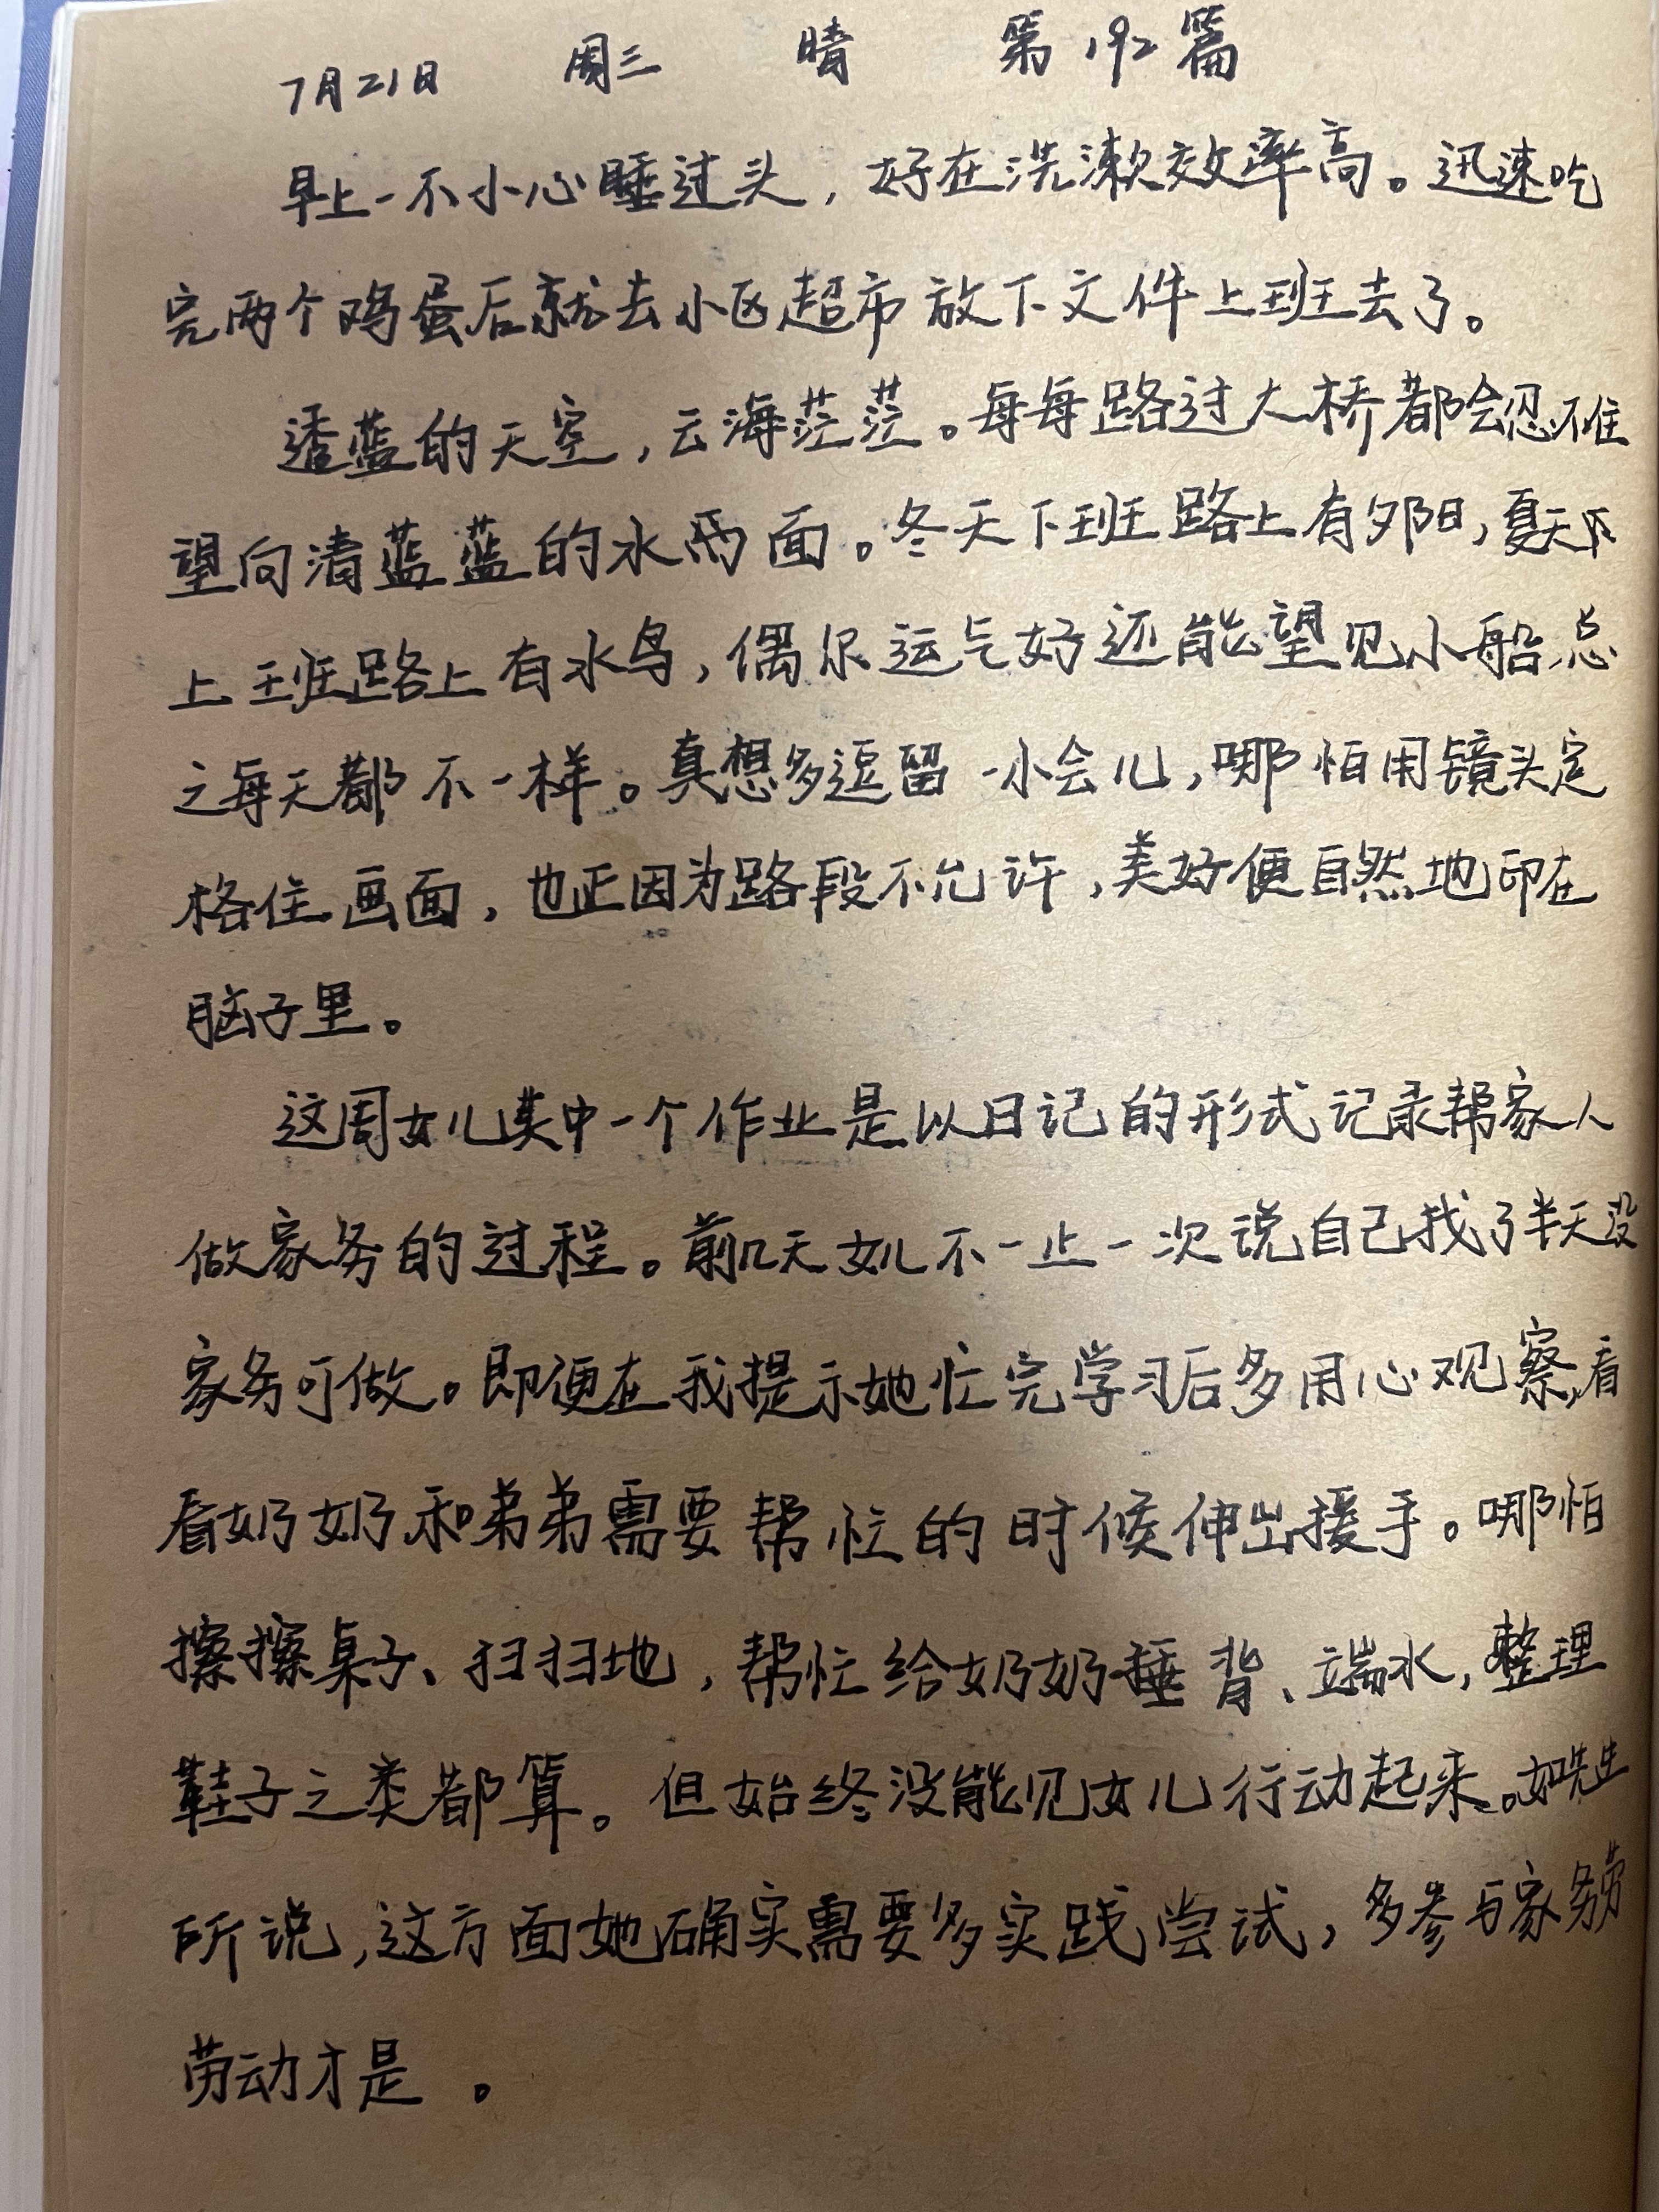 7月21日 周三 晴 第192篇
早上一不小心睡过头，好在洗漱效率高。迅速吃
完两个鸡蛋后就去小区超市放下文件上班去了。
透蓝的天空，云海茫茫。每每路过大桥都会忍不住
望向清蓝蓝的水两面。冬天下班路上有夕阳，夏天
上班路上有水鸟，偶尔运气好还能望见小船，总
之每天都不一样。真想多逗留一小会儿，哪怕用镜头定
格住画面，也正因为路段不允许，美好便自然地印在
脑子里。
这周女儿其中一个作业是以日记的形式记录帮家人
做家务的过程。前几天女儿不一止一次说自己找了半天没
家务可做。即便在我提示她忙完学习后多用心观察，看
看奶奶和弟弟需要帮忙的时候伸出援手。哪怕
擦擦桌子、扫扫地，帮忙给奶奶捶背、端水，整理
鞋子之类都算。但始终没能见女儿行动起来。如先生
所说，这方面她确实需要多实践尝试，多参与家务
劳动才是。